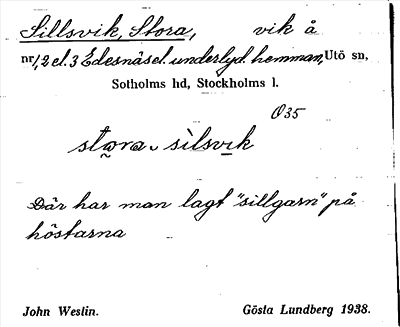 Sillsvik, Stora, vik å
nr 1, 2 el. 3 Edesnäs el. underlyd. hemman, Utö sn,
Sotholms hd, Stockholms l.
Ö 35
stora sìlsvik
Där har man lagt "sillgarn" på
höstarna
John Westin. Gösta Lundberg 1938.